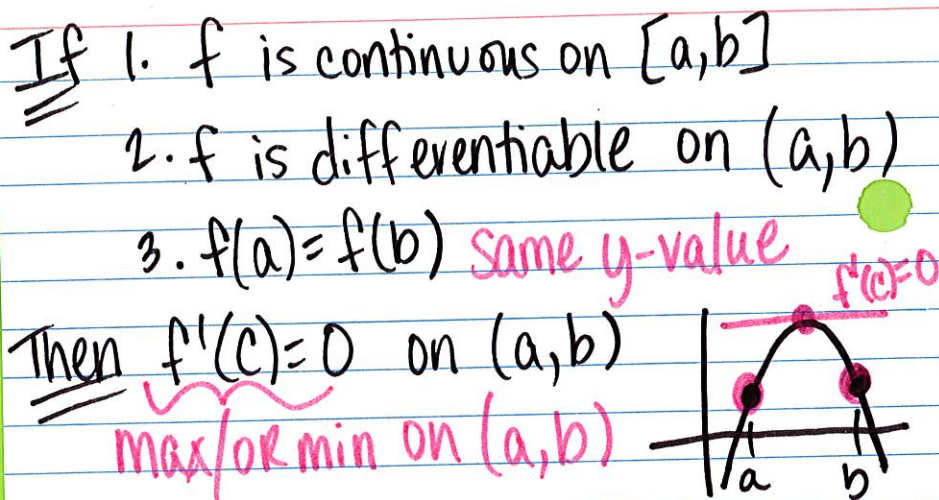 If 1. f is continuous on [a,b]
2. f is differentiable on (a,b)
3. f(a)=f(b) same y-value
f'(c)=0
Then f'(c)=0 on (a,b)
max/or min on (a,b)
a b